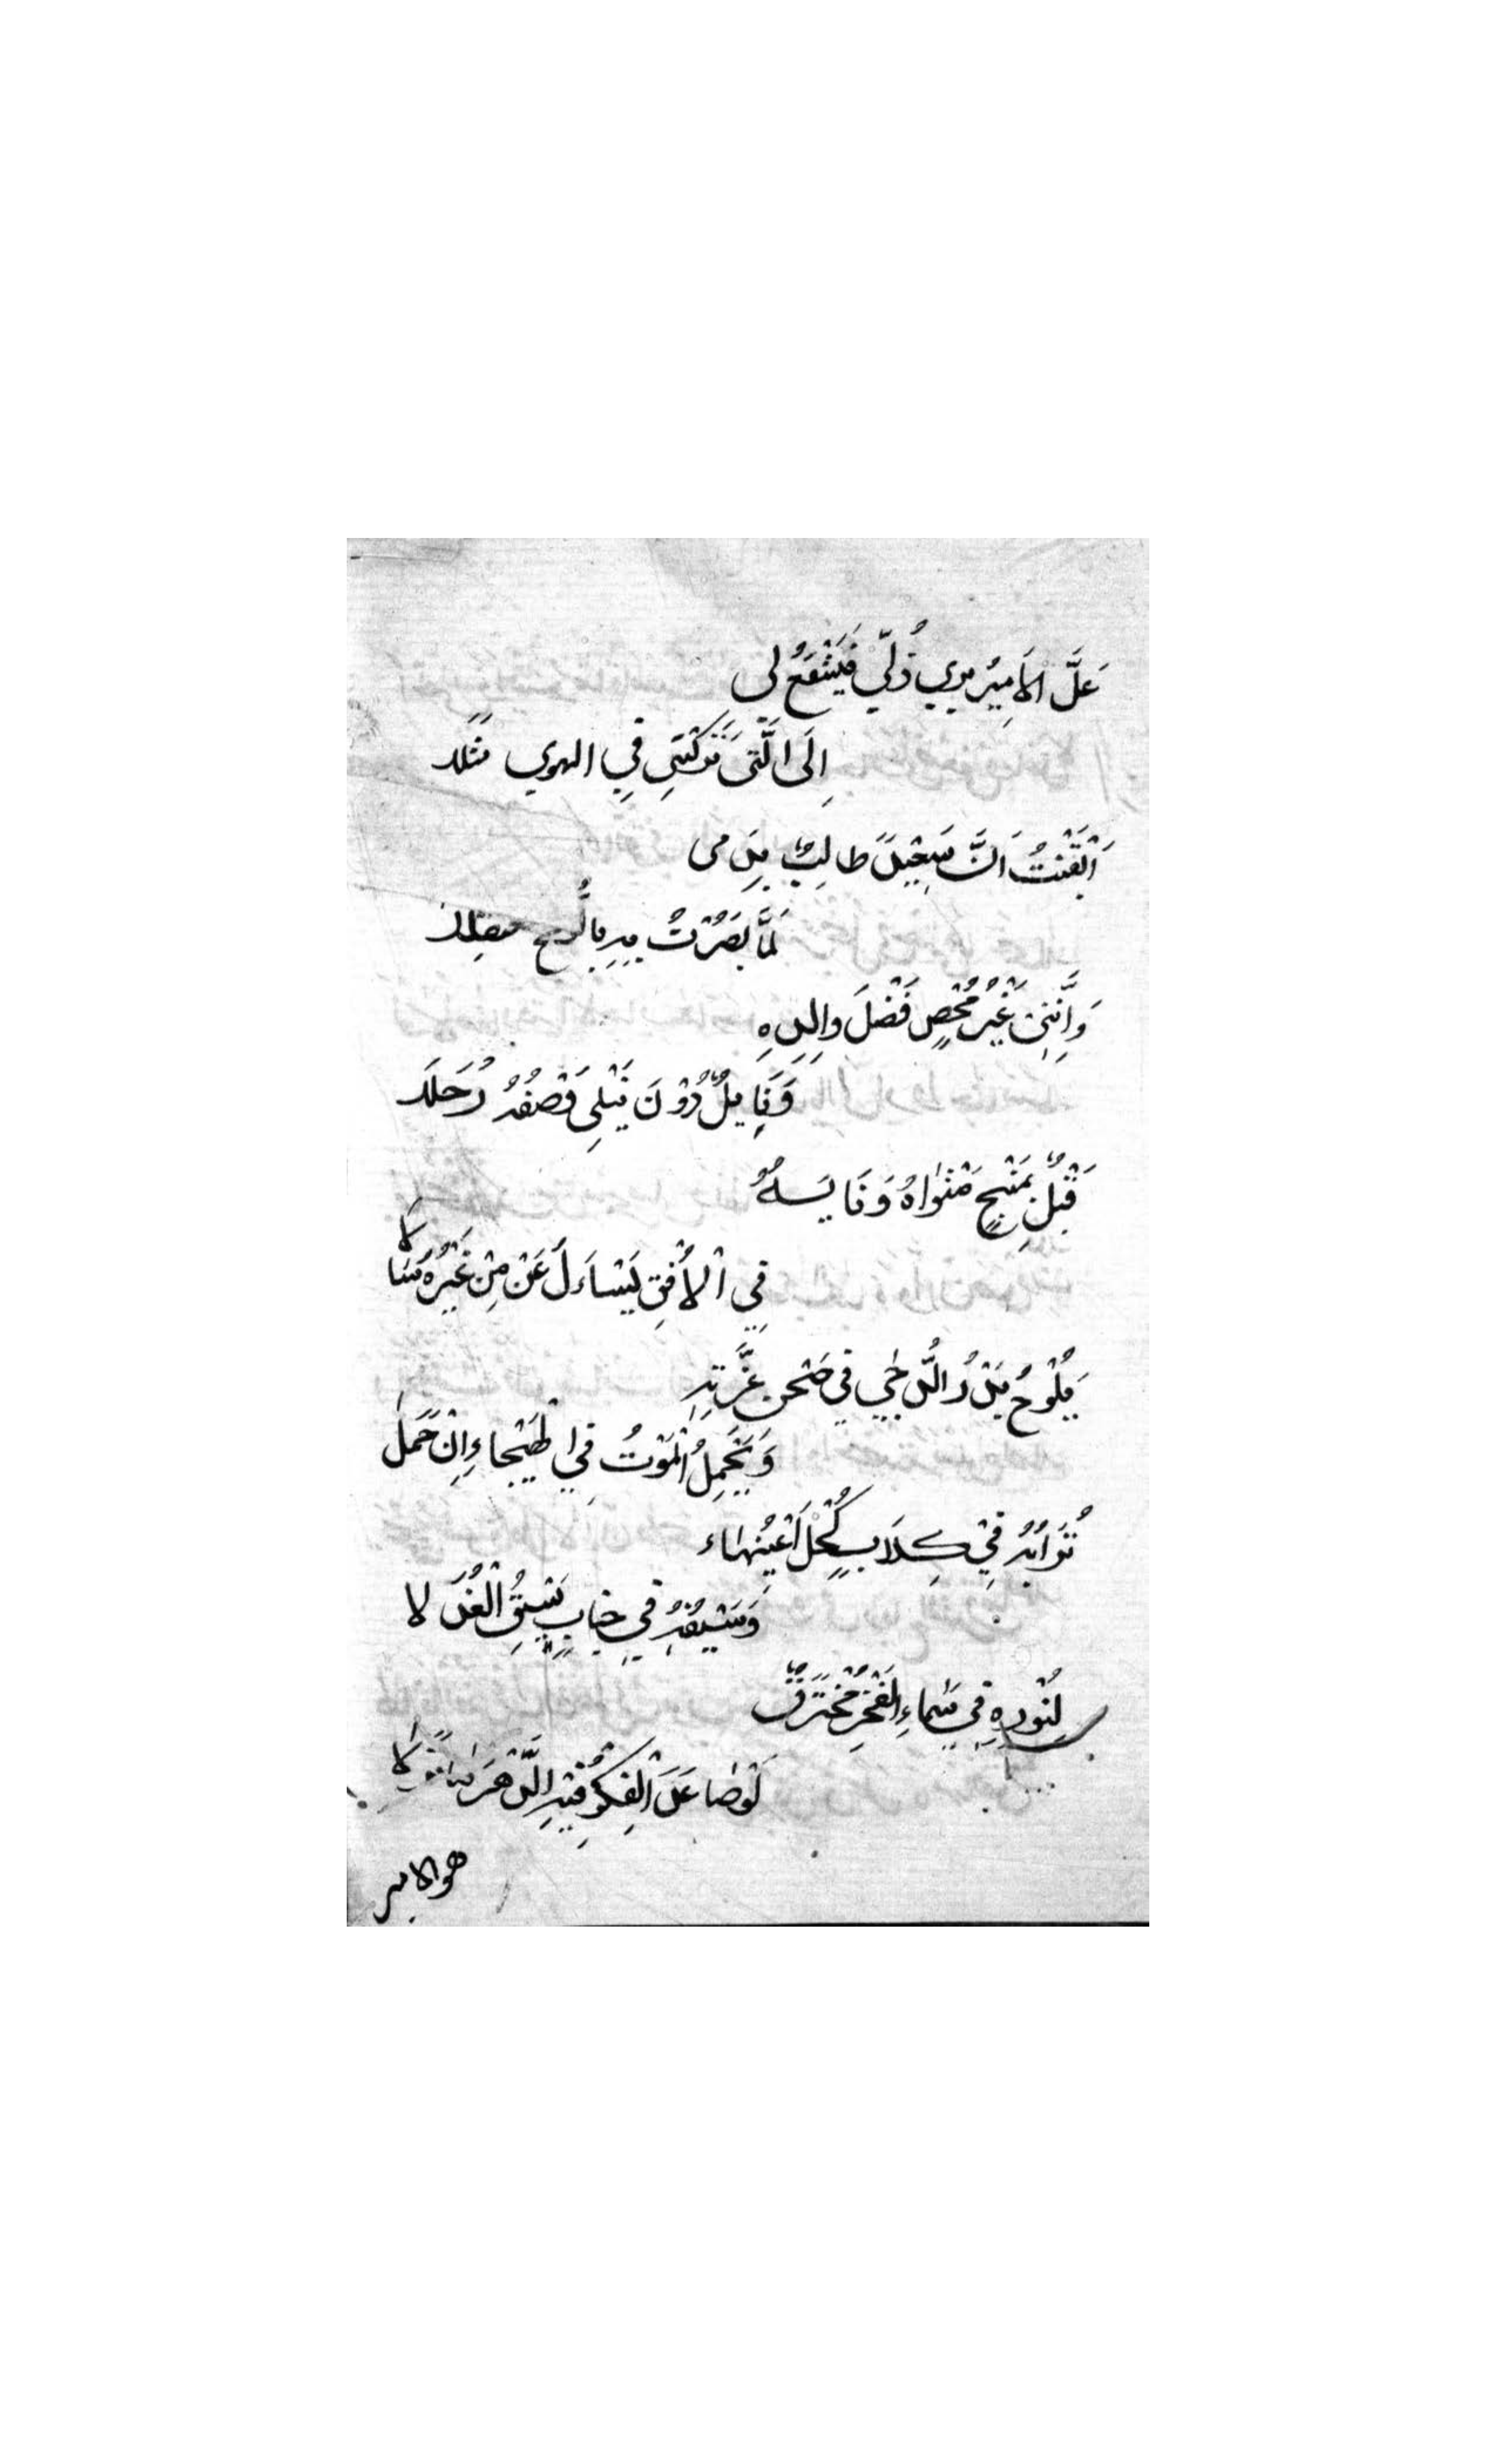 عَلَّ الاَمِيْرُ يري ذُلّي فَيَشْفَعُ لي
اِلَى الَّتىِ تَرَكَتْنىِ فِي الهوي مَثَلَا
اَيْقَنْتُ اَنَّ سَعِيْدًا طالِبٌ بِدَمى
لَمَّا بَصُرْتُ بِهِ بِالرُّمح معتقلا
وَاِنَّنِىْ غَيْرُ مُحْصٍ فَضْلَ والِدِهِ
وَنَايِلٌ دُوْنَ نَيْلِى وَصْفُهُ زُحَلَا
قَيْلٌ بِمَنْبِجٍ مَثْوَاهُ وَنَايِلُهُ
فِي الْاُفْقِ يَسْاَلُ عَنْ مِنْ غَيْرُهُ سَالَا
يَلُوْحُ بَدْرُ الدُّجٰي فِي صَحْنِ غُرَّتِهِ
وَيَحْمِلُ الْمَوْتُ فِي الْهَيْجاءِ اِنْ حَمَلَ
تُرَابُهُ فِيْ كِلَابٍ كُحْلُ اَعْيُنِهاَ
وَسَيْفُهُ فِي جنابٍ يَسْبِقُ الْعُذَلا
لِنُوْرِهِ فِي سَمَاءِ الْفَخْرِ مُخْتَرَقٌ
لَوْ صَاعَدَ الْفِكْرُ فِيْهِ الدَّهْرَ مانَزَلَا
هو الامير